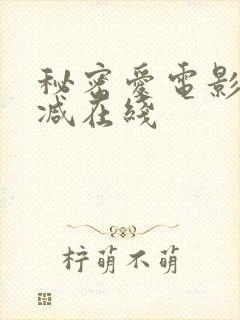 秘密愛電影
減在綫
梓萌不萌